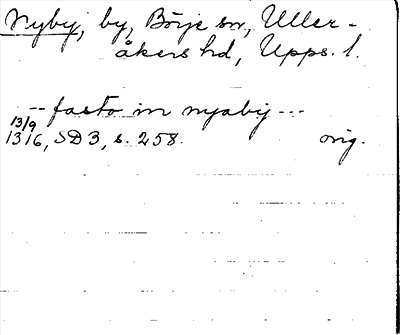 Nyby, by, Börje sn, Uller-
åkers hd, Upps. l.
-- fasto in nyaby ---
13/9
1316, SD 3, s. 258. orig.